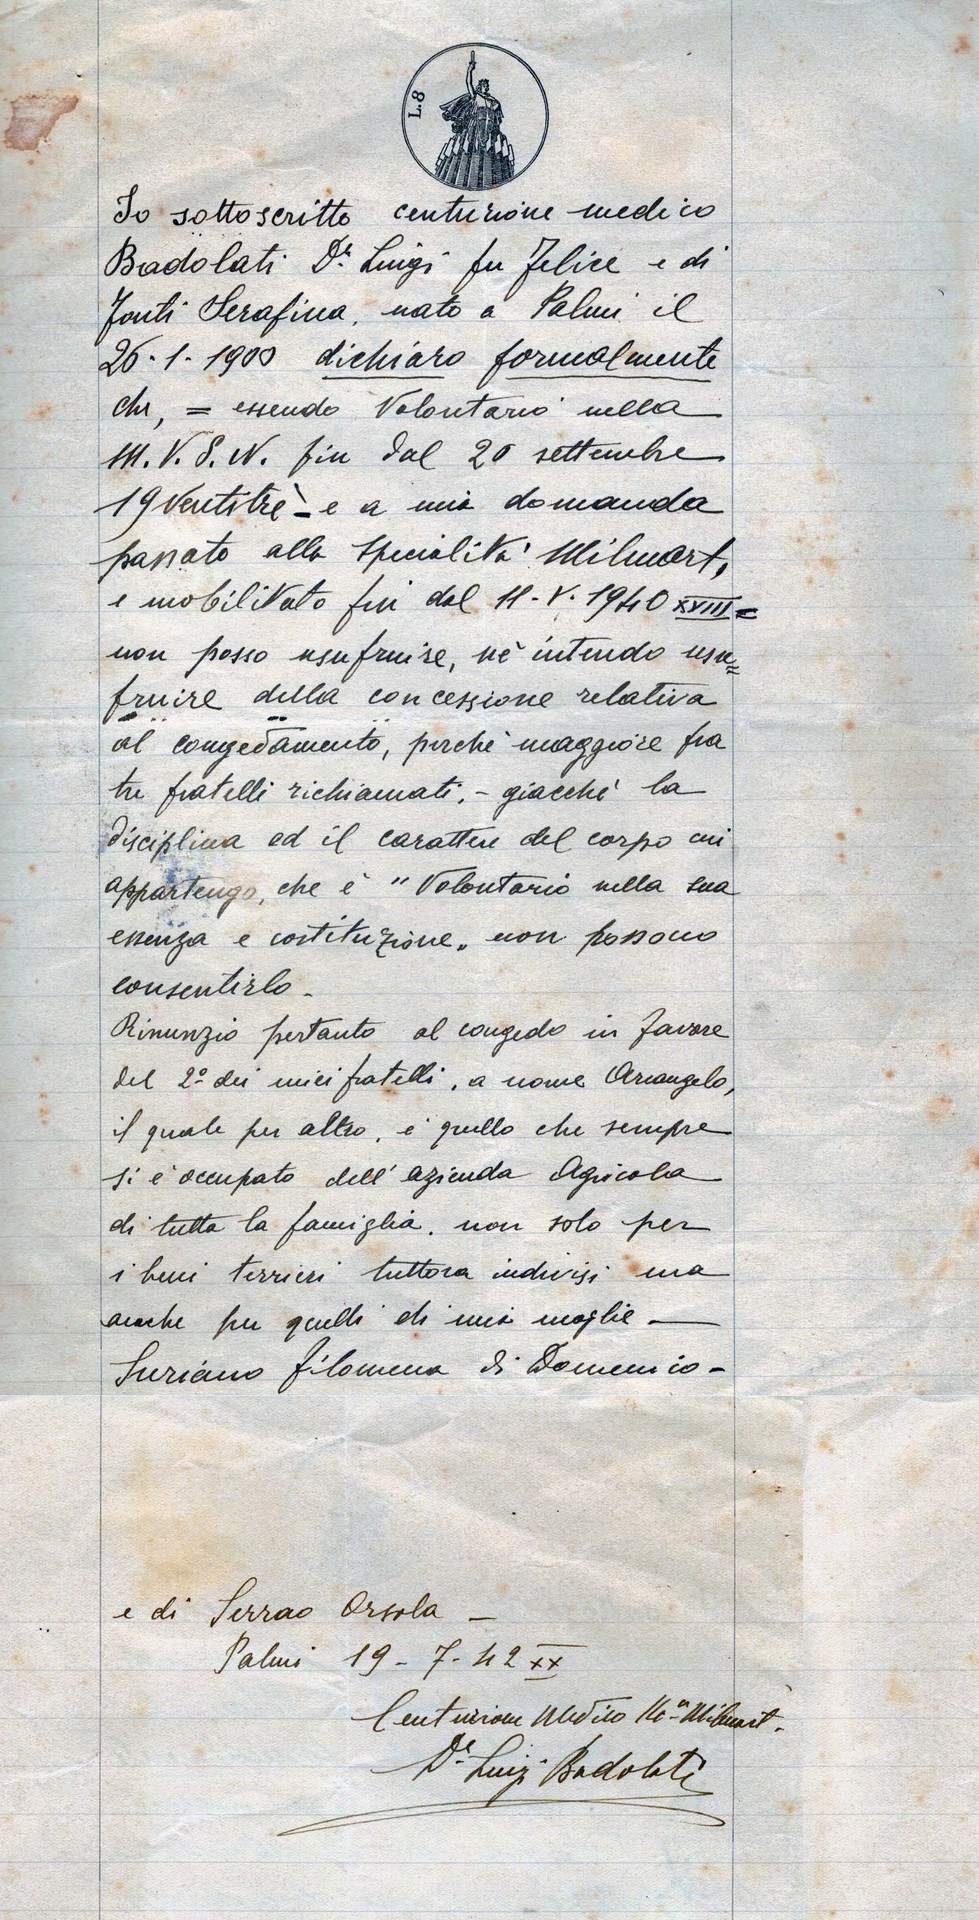 L.8
Io sottoscritto centurione medico
Badolati Dr. Luigi fu Felice e di
Fonti Serafina, nato a Palmi il
26-1-1900 dichiaro formalmente
che, = essendo Volontario nella
M.V.S.N. fin dal 20 settembre
19ventitrè - e a mia domanda
passato alla specialità Milmart,
e mobilitato fin dal 11-V-1940 XVIII =
non posso usufruire, nè intendo usu=
fruire della concessione relativa
al congedamento, perchè maggiore fra
tre fratelli richiamati, - giacchè la
disciplina ed il carattere del corpo cui
appartengo, che è "Volontario nella sua
essenza e costituzione" non possono
consentirlo -
Rinunzio pertanto al congedo in favore
del 2° dei miei fratelli, a nome Arcangelo,
il quale per altro, è quello che sempre
si è occupato dell'azienda Agricola
di tutta la famiglia, non solo per
i beni terrieri tuttora indivisi ma
anche per quelli di mia moglie -
Suriano Filomena di Domenico -
e di Serrao Orsola -
Palmi 19-7-42 XX
Centurione Medico Milmart.
Dr. Luigi Badolati